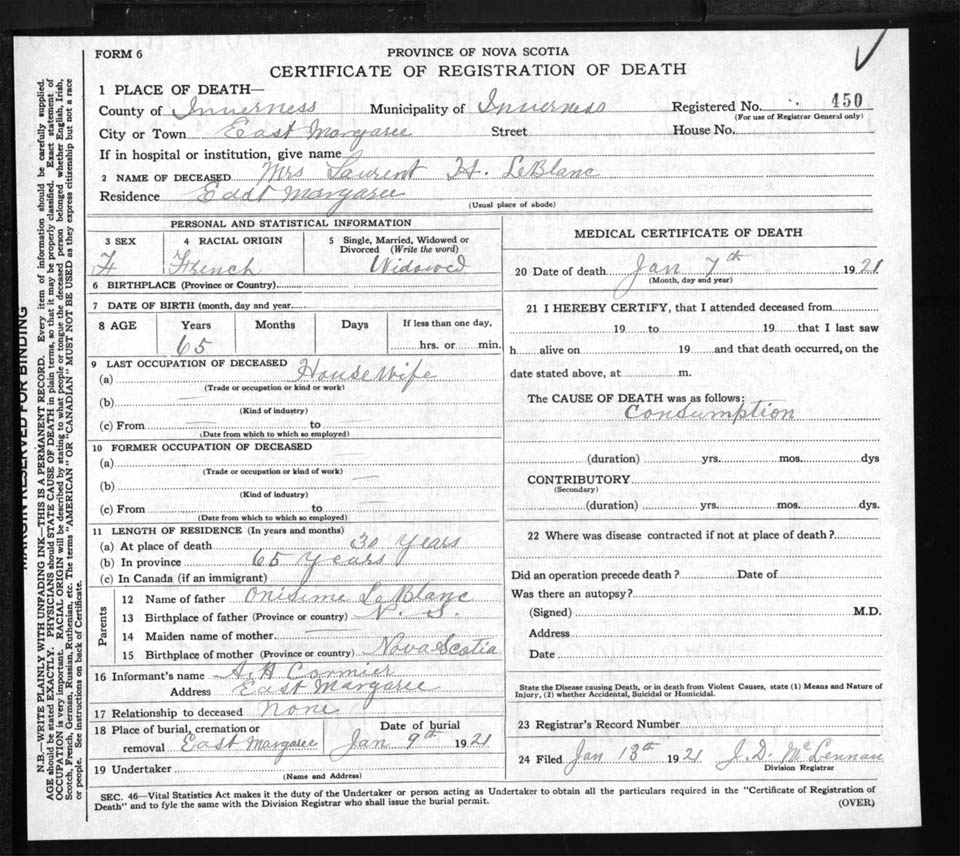 FORM 6
PROVINCE OF NOVA SCOTIA
CERTIFICATE OF REGISTRATION OF DEATH
1 PLACE OF DEATH—
County of Inverness Municipality of Inverness Registered No. 450
(For use of Registrar General only)
City or Town East Margaree Street House No.
If in hospital or institution, give name
2 NAME OF DECEASED Mrs Laurent H. LeBlanc
Residence East Margaree
(Usual place of abode)
PERSONAL AND STATISTICAL INFORMATION
3 SEX 4 RACIAL ORIGIN 5 Single, Married, Widowed or Divorced (Write the word)
F French Widowed
6 BIRTHPLACE (Province or Country)
7 DATE OF BIRTH (month, day and year)
8 AGE Years Months Days If less than one day,
65 hrs. or min.
9 LAST OCCUPATION OF DECEASED
(a) Housewife
(Trade or occupation or kind or work)
(b) —
(Kind of industry)
(c) From — to
(Date from which to which so employed)
10 FORMER OCCUPATION OF DECEASED
(a) —
(Trade or occupation or kind of work)
(b) —
(Kind of industry)
(c) From — to —
(Date from which to which so employed)
11 LENGTH OF RESIDENCE (In years and months)
(a) At place of death 30 years
(b) In province 65 years
(c) In Canada (if an immigrant)
Parents
12 Name of father Onisime LeBlanc
13 Birthplace of father (Province or country) N. S.
14 Maiden name of mother —
15 Birthplace of mother (Province or country) Nova Scotia
16 Informant's name A. H Cormier
Address East Margaree
17 Relationship to deceased None
18 Place of burial, cremation or removal East Margaree Date of burial Jan 9th 1921
19 Undertaker
(Name and Address)
MEDICAL CERTIFICATE OF DEATH
20 Date of death Jan 7th 1921
(Month, day and year)
21 I HEREBY CERTIFY, that I attended deceased from
19 to 19 that I last saw
h alive on 19 and that death occurred, on the
date stated above, at m.
The CAUSE OF DEATH was as follows:
Consumption
(duration) yrs. mos. dys
CONTRIBUTORY
(Secondary)
(duration) yrs. mos. dys.
22 Where was disease contracted if not at place of death?
Did an operation precede death? Date of
Was there an autopsy?
(Signed) M.D.
Address
Date
State the Disease causing Death, or in death from Violent Causes, state (1) Means and Nature of
Injury, (2) whether Accidental, Suicidal or Homicidal.
23 Registrar's Record Number
24 Filed Jan 13th 1921 J. D. McLennan
Division Registrar
SEC. 46—Vital Statistics Act makes it the duty of the Undertaker or person acting as Undertaker to obtain all the particulars required in the "Certificate of Registration of
Death" and to fyle the same with the Division Registrar who shall issue the burial permit.
(OVER)
MARGIN RESERVED FOR BINDING
N.B.—WRITE PLAINLY WITH UNFADING INK—THIS IS A PERMANENT RECORD. Every item of information should be carefully supplied.
AGE should be stated EXACTLY. PHYSICIANS should STATE CAUSE OF DEATH in plain terms, so that it may be properly classified. Exact statement of
OCCUPATION is very important. RACIAL ORIGIN will be described by stating to what people or tongue the deceased person belonged whether English, Irish,
Scotch, French, German, Russian, Ruthenian, etc. The terms "AMERICAN" OR "CANADIAN" MUST NOT BE USED as they express citizenship but not a race
or people. See instructions on back of Certificate.